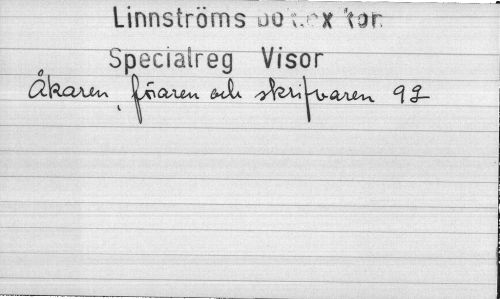 Linnströms
Specialreg Visor
Åkaren, föraren och skrifvaren 92